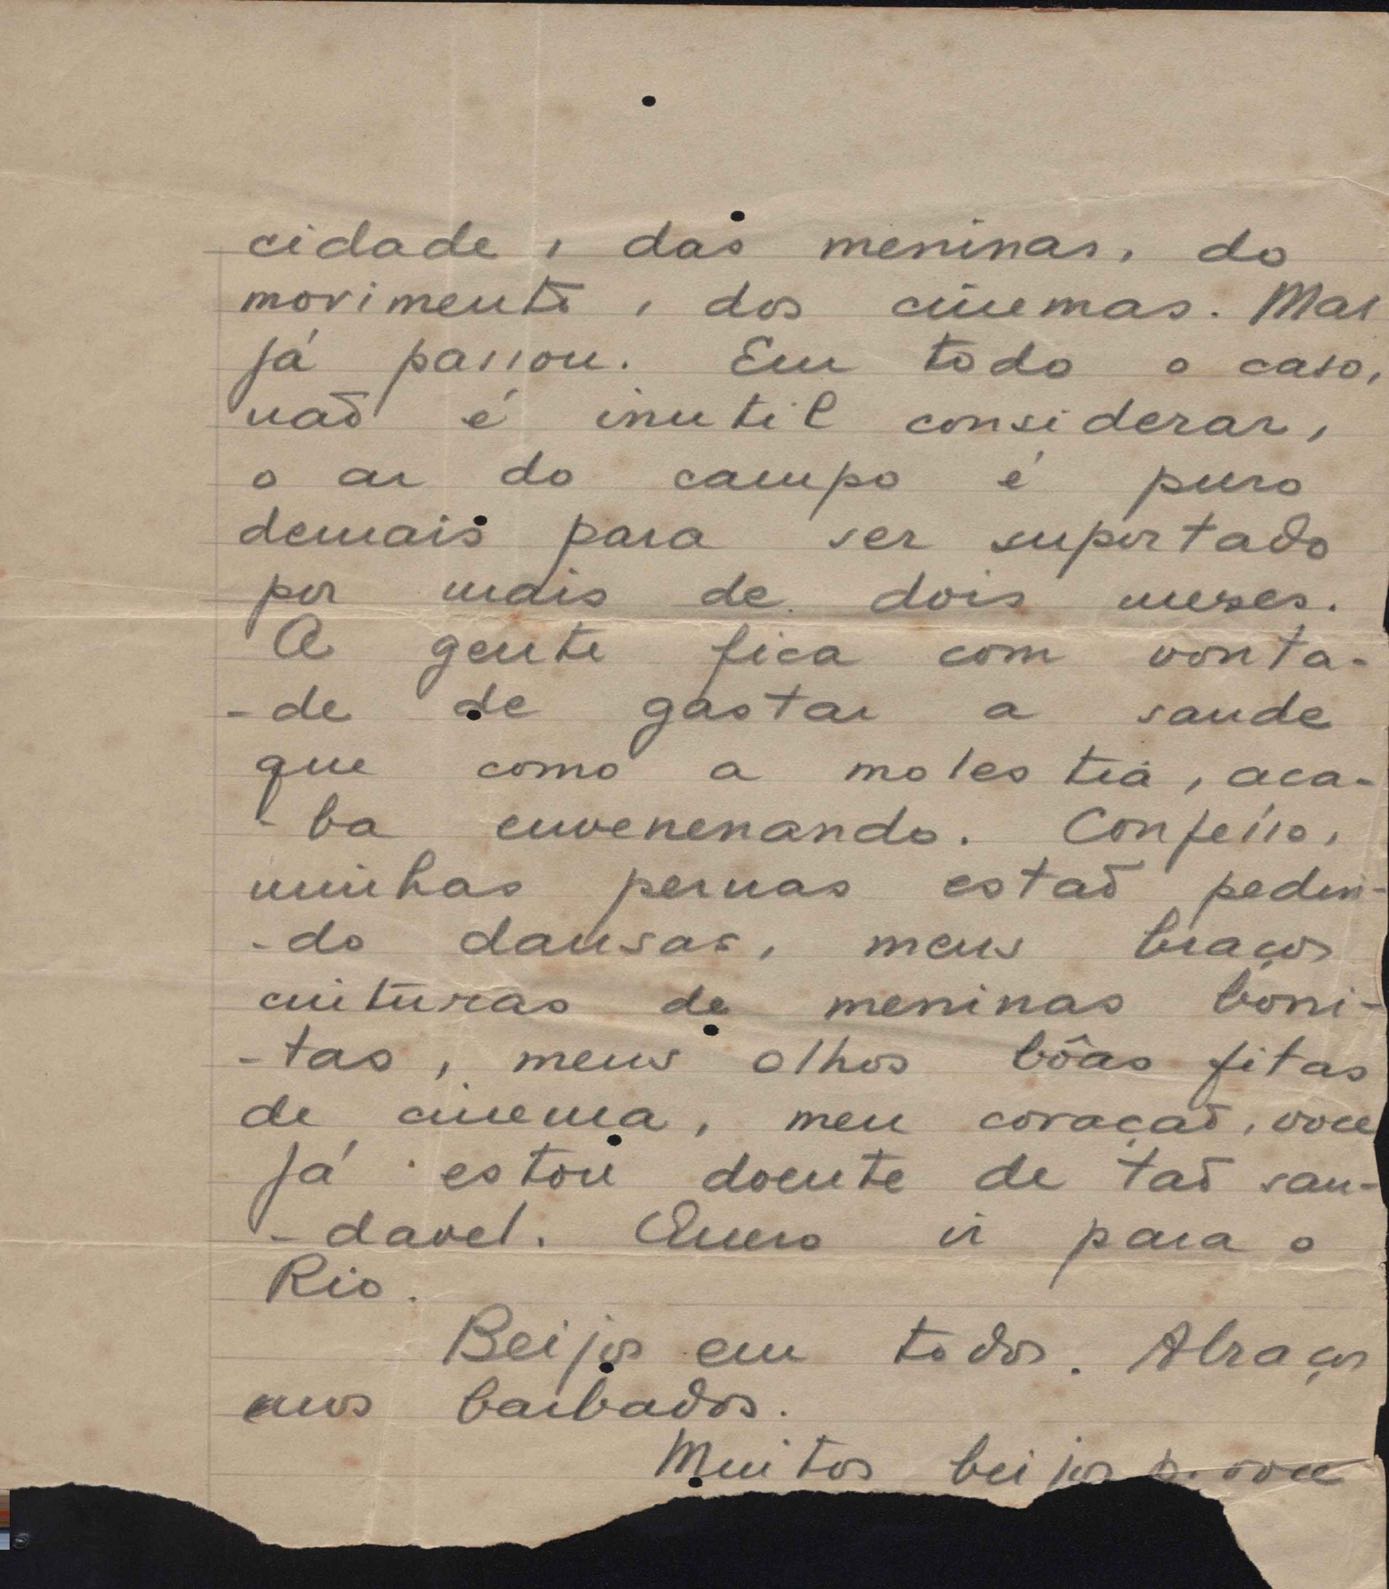 cidade, das meninas, do
movimento, dos cinemas. Mas
já passou. Em todo o caso,
naõ é inutil considerar,
o ar do campo é puro
demais para ser suportado
por mais de dois meses.
A gente fica com vonta-
-de de gastar a saude
que como a molestia, aca-
-ba envenenando. Confesso,
minhas pernas estaõ pedin-
-do dansas, meus braços
cinturas de meninas boni-
-tas, meus olhos bôas fitas
de cinema, meu coraçaõ, voce
já estou doente de taõ sau-
-davel. Quero ir para o
Rio.
Beijos em todos. Abraços
nos barbados.
Muitos beijos p. voce